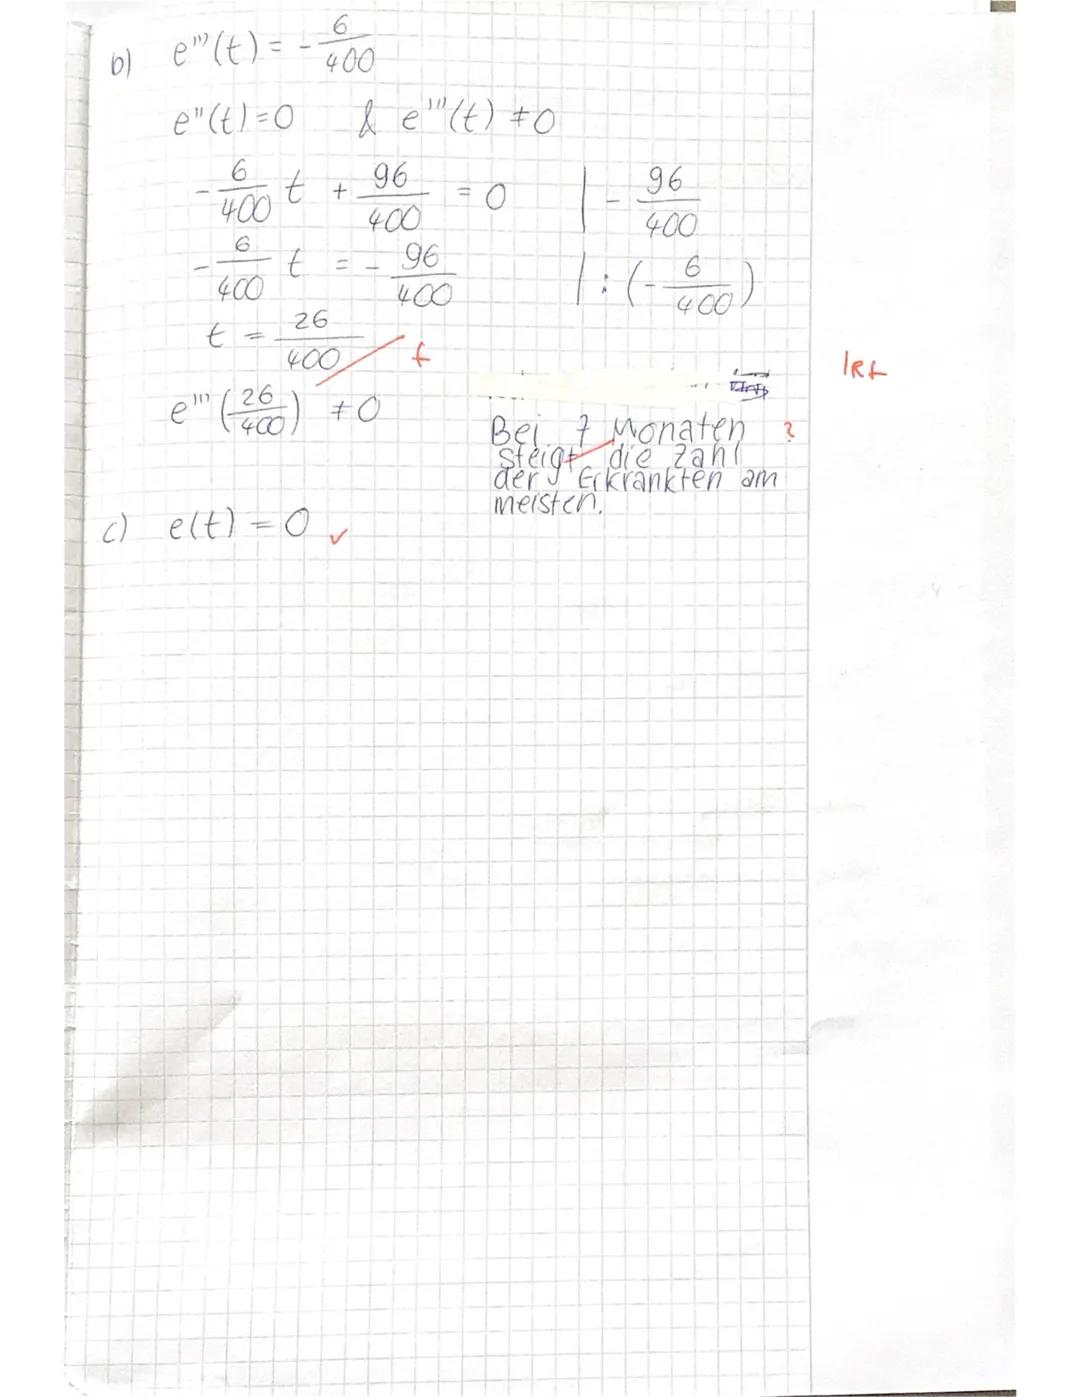 b) e'''(t) = - 6/400
e''(t) = 0 & e'''(t) ≠ 0
- 6/400 t + 96/400 = 0 | - 96/400
- 6/400 t = - 96/400 | : (- 6/400)
t = 26/400 f
IRf
e''' (26/400) ≠ 0
Bei 7 Monaten ?
steigt die Zahl
der Erkrankten am
meisten.
c) e(t) = 0 ✓